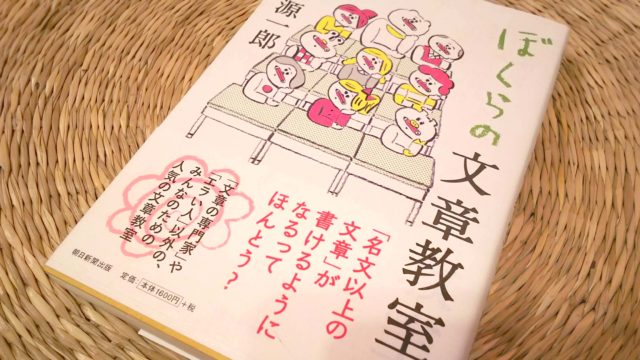 ぼくらの
文章教室
源一郎
「名文以上の
文章」が
書けるように
なるって
ほんとう?
「文章の専門家」や
「うまい人」以外の、
みんなのための
人気の文章教室
朝日新聞出版
定価:本体1600円+税